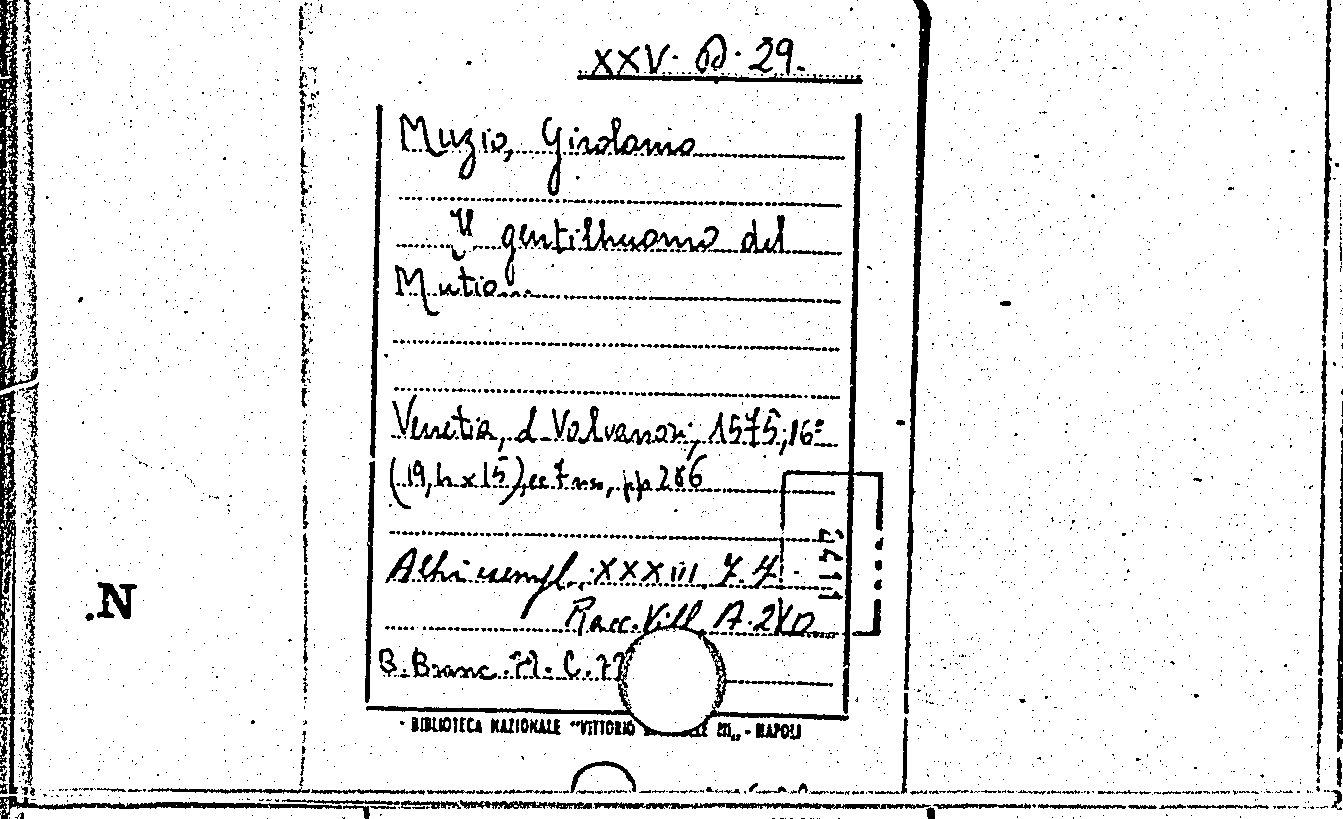 XXV. D. 29.
Muzio, Girolamo
Il gentilhuomo del
Mutio...
Venetia, d Valvanori, 1575, 16º
(19, h x 15), cc 7 nn, pp 286
Altri esempl. XXXIII 7. 4.
Racc. Vill. A. 240
B. Branc. 71. C.
.N
BIBLIOTECA NAZIONALE "VITTORIO III" - NAPOLI